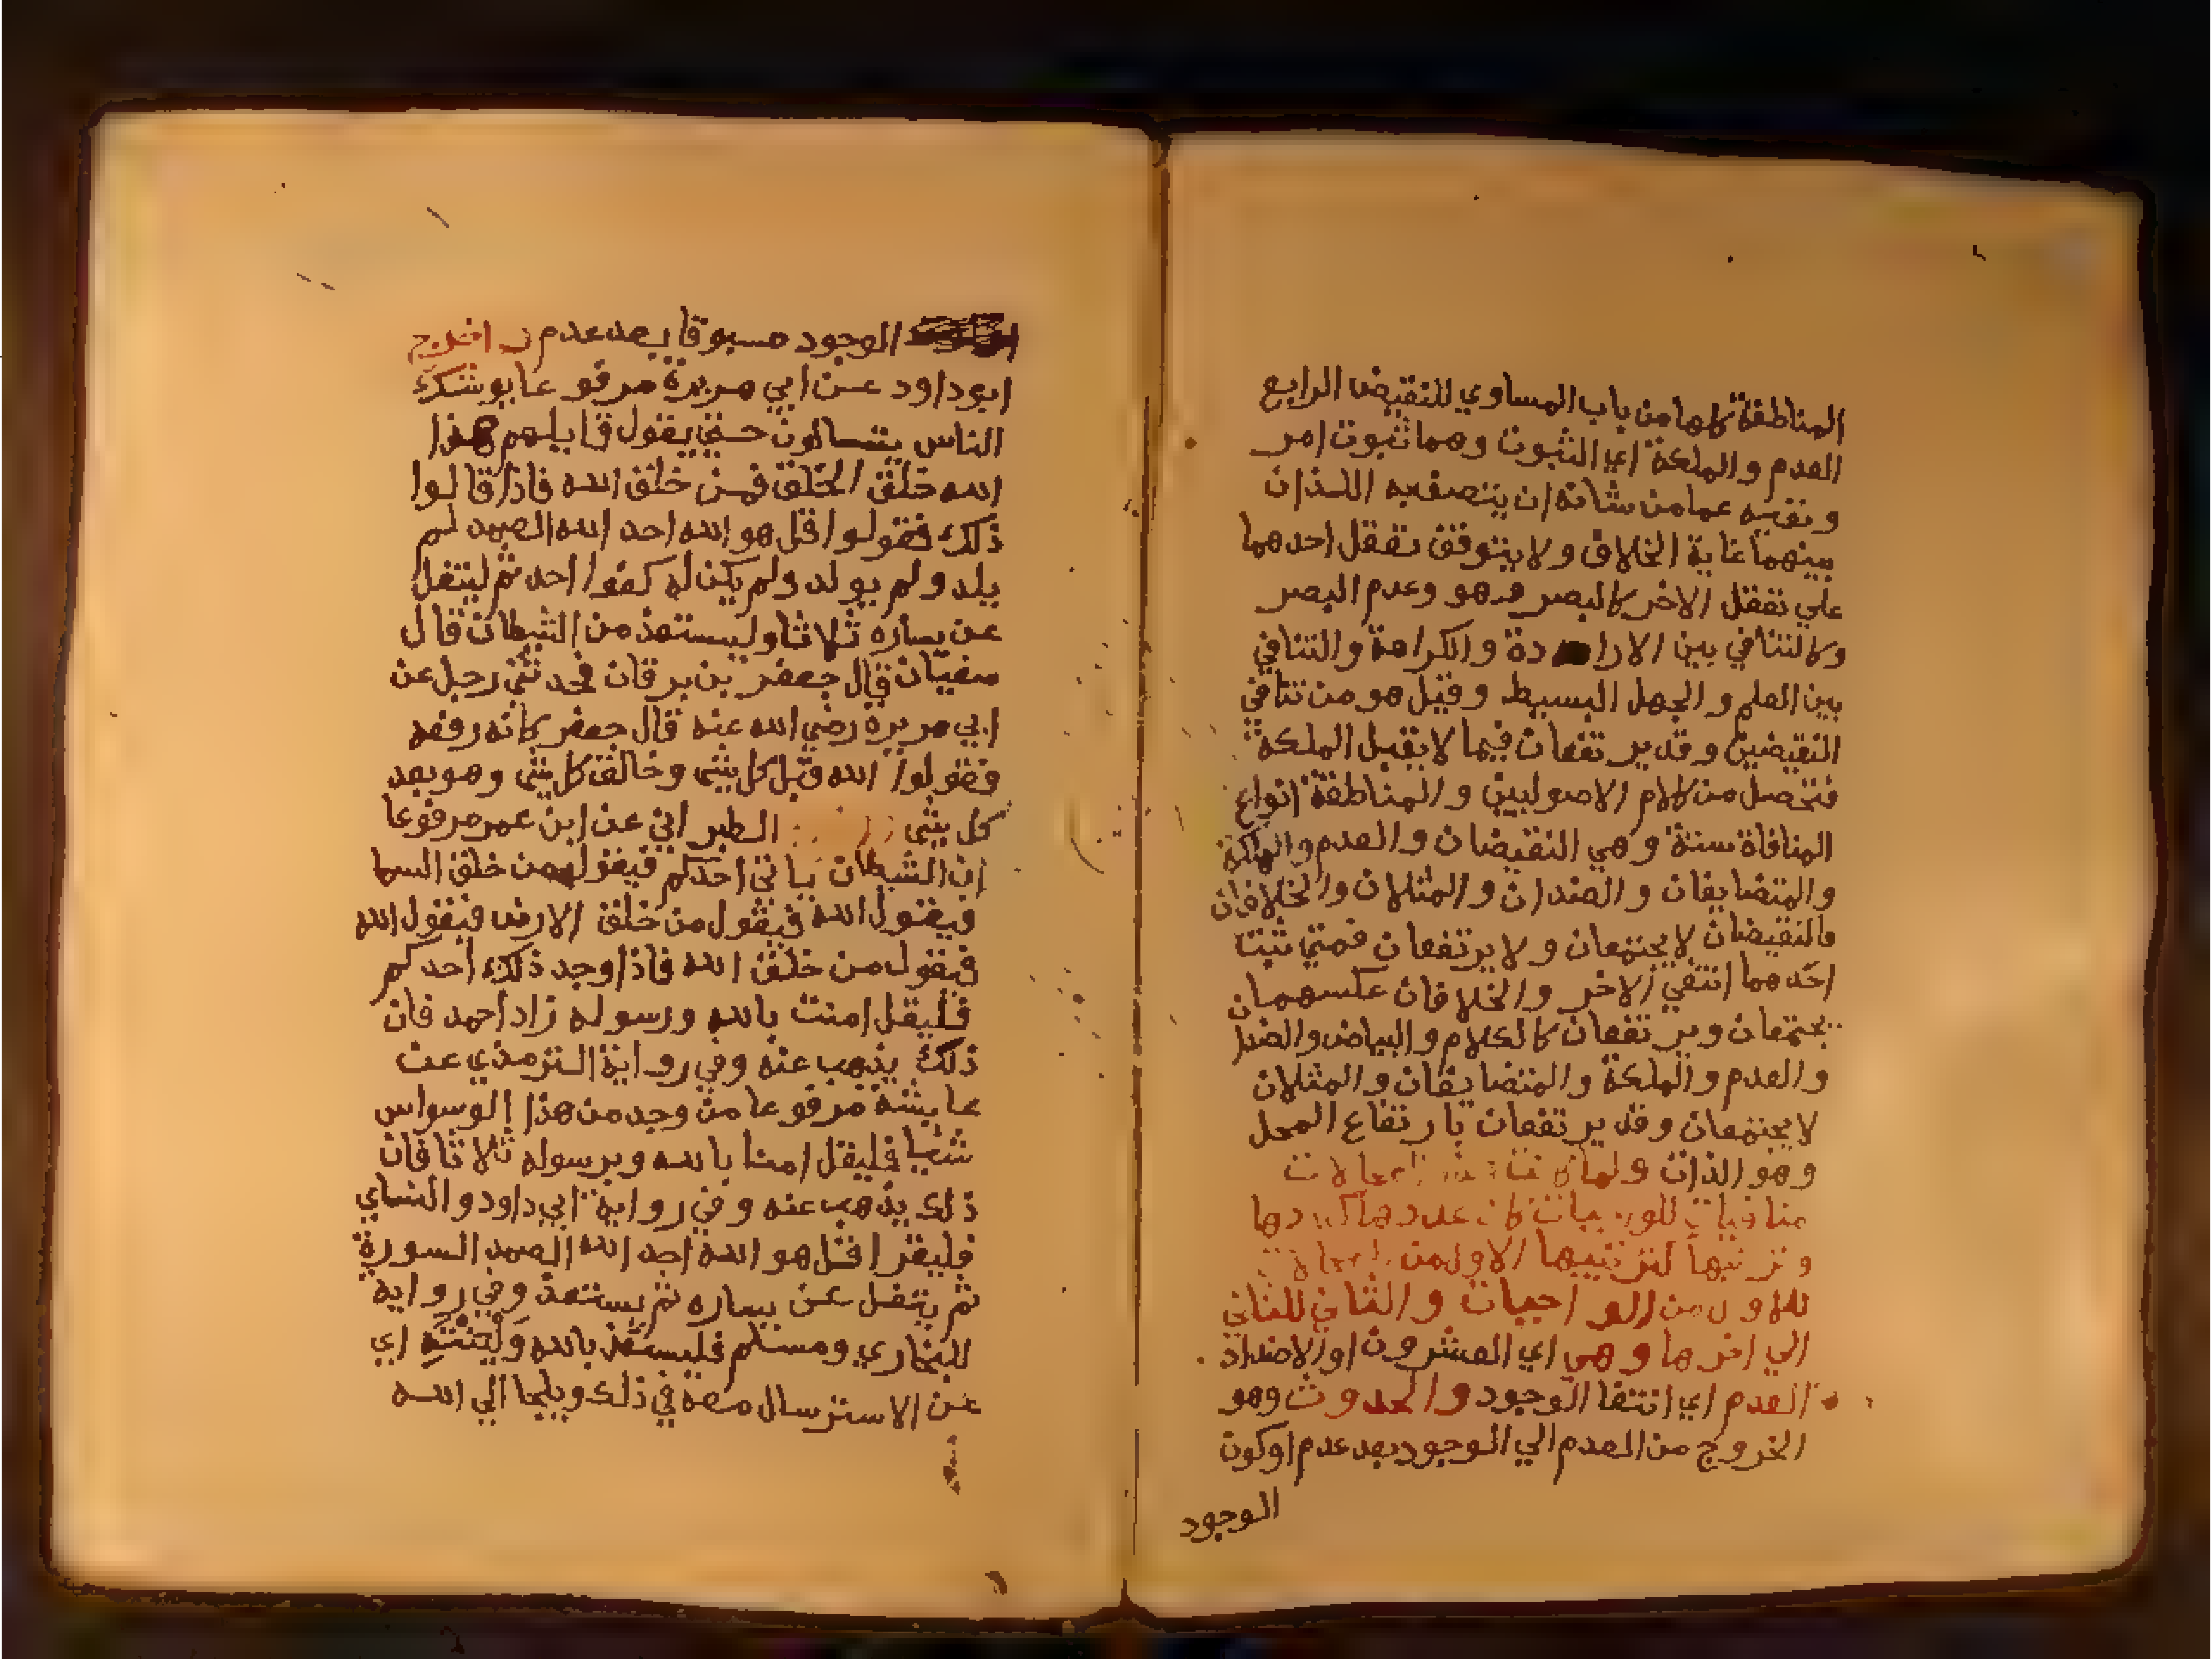 المناطقة كلها من باب المساوي للنقيض الرابع
العدم والملكة اي الثبوت وهما ثبوت امر
ونفيه عما من شانه ان يتصف به اللذان
بينهما غاية الخلاف ولا يتوقف تعقل احدهما
علي تعقل الاخر كالبصر وعدم البصر
وكالتنافي بين الارادة والكراهة والتنافي
بين العلم والجهل البسيط وقيل هو من تنافي
النقيضين وقد يرتفعان فيما لا يقبل الملكة
فتحصل من كلام الاصوليين والمناطقة انواع
المنافاة ستة وهي النقيضان والعدم والملكة
والمتضايفان والضدان والمثلان والخلافان
فالنقيضان لا يجتمعان ولا يرتفعان فمتي ثبت
احدهما انتفي الاخر والخلافان عكسهما
يجتمعان ويرتفعان كالكلام والبياض والضدا
والعدم والملكة والمتضايفان والمثلان
لا يجتمعان وقد يرتفعان بارتفاع المحل
وهو الذات ولما كانت
منافيات للواجبات كان عددها كعددها
وترتيبها كترتيبها الاول من
للاول من الواجبات والثاني للثاني
الي اخرها وهي اي العشرون او الاضداد
العدم اي انتفا الوجود والحدوث وهو
الخروج من العدم الي الوجود بعد عدم او كون
الوجود
الوجود مسبوقا بعدم اخرج
ابوداود عن ابي هريرة مرفوعا يوشك
الناس يتسالون حتي يقول قايلهم هذا
الله خلق الخلق فمن خلق الله فاذا قالوا
ذلك فقولوا قل هو الله احد الله الصمد لم
يلد ولم يولد ولم يكن له كفوا احد ثم ليتفل
عن يساره ثلاثا وليستعذ من الشيطان قال
سفيان قال جعفر بن برقان فحدثني رجل عن
ابي هريرة رضي الله عنه قال جعفر كانه رفعه
فقولوا الله قبل كل شي وخالق كل شي وهو بعد
كل شي الطبراني عن ابن عمر مرفوعا
ان الشيطان ياتي احدكم فيقول من خلق السما
فيقول الله فيقول من خلق الارض فيقول الله
فيقول من خلق الله فاذا وجد ذلك احدكم
فليقل امنت بالله ورسوله زاد احمد فان
ذلك يذهب عنه وفي رواية الترمذي عن
عايشة مرفوعا من وجد من هذا الوسواس
شيا فليقل امنا بالله وبرسوله ثلاثا فان
ذلك يذهب عنه وفي رواية ابي داود والنساي
فليقرا قل هو الله احد الله الصمد السورة
ثم يتفل عن يساره ثم يستعذ وفي رواية
للبخاري ومسلم فليستعذ بالله ولينته اي
عن الاسترسال معه في ذلك ويلجا الي الله